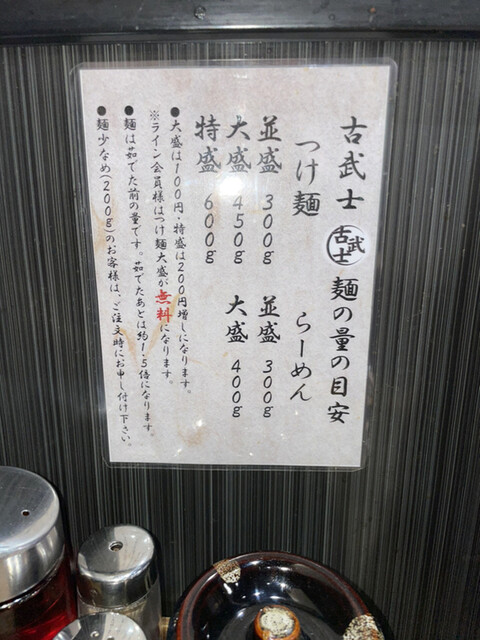 古武士 古武士 麺の量の目安
つけ麺
並盛 300g
大盛 450g
特盛 600g
らーめん
並盛 300g
大盛 400g
●大盛は100円・特盛は200円増しになります。
※ライン会員様はつけ麺大盛が無料になります。
●麺は茹でた前の量です。茹でたあとは約1.5倍になります。
●麺少なめ(200g)のお客様は、ご注文時にお申し付け下さい。